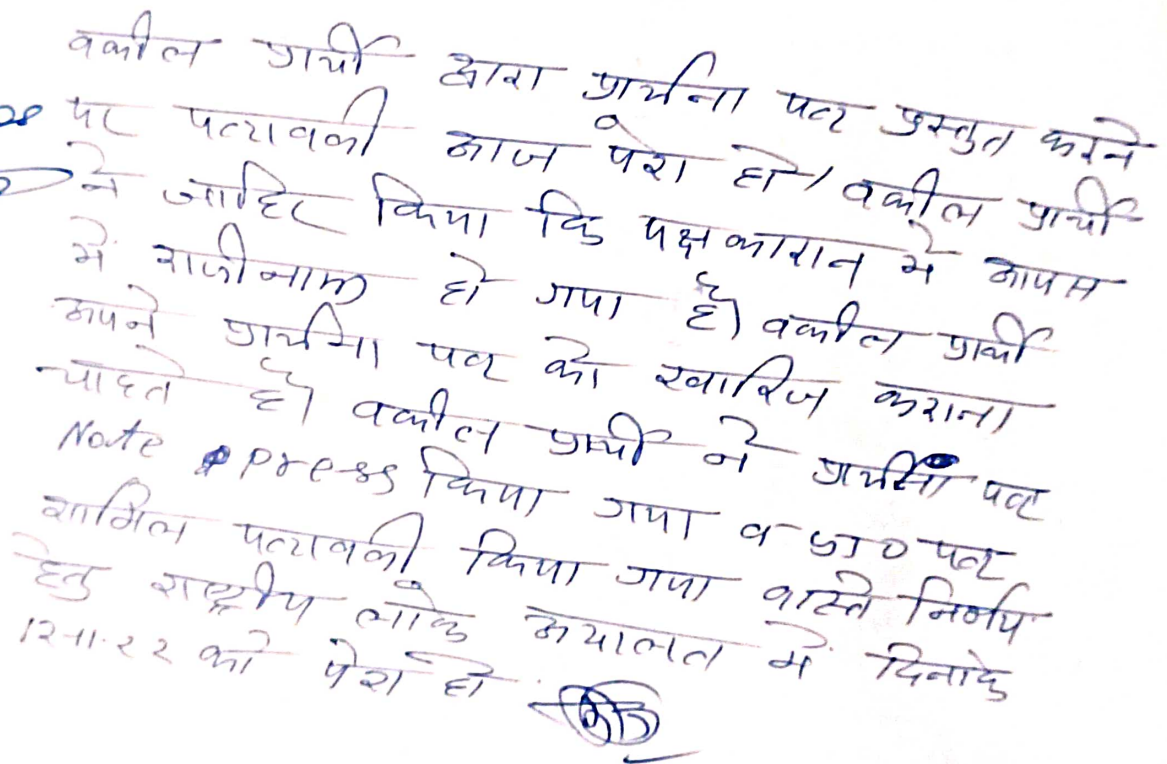 वकील प्रार्थी द्वारा प्रार्थना पत्र प्रस्तुत करने
पर पत्रावली आज पेश हो। वकील प्रार्थी
ने जाहिर किया कि पक्षकारान में आपस
में राजीनामा हो गया है। वकील प्रार्थी
अपने प्रार्थना पत्र को खारिज कराना
चाहते है। वकील प्रार्थी ने प्रार्थना पत्र
Note press किया गया व प्रा० पत्र
शामिल पत्रावली किया गया वास्ते निर्णय
हेतु राष्ट्रीय लोक अदालत में दिनांक
12-11-22 को पेश हो